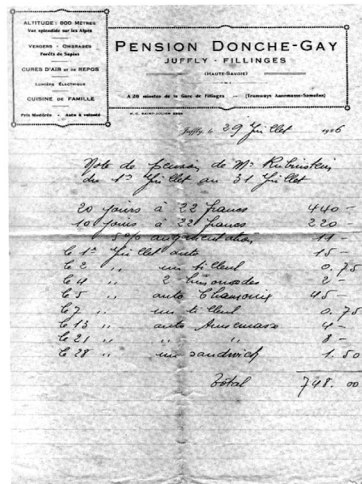 ALTITUDE: 600 MÈTRES
Vue splendide sur les Alpes
VERGERS - OMBRAGES
Forêts de Sapins
CURES D'AIR ET DE REPOS
LUMIÈRE ÉLECTRIQUE
CUISINE DE FAMILLE
Prix Modérés - Auto à volonté
PENSION DONCHE-GAY
JUFFLY - FILLINGES
(HAUTE-SAVOIE)
A 20 minutes de la Gare de Fillinges (Tramways Annemasse-Samoëns)
R. C. SAINT-JULIEN
Juffly le 29 Juillet 1926
Note de pension de Mr Rubinstein
du 1er Juillet au 31 Juillet
20 jours à 22 francs 440 -
10 jours à 22 francs 220 -
5% augmentation 11 -
le 1er Juillet auto 15 -
le 2 " un tilleul 0.75
le 4 " 2 limonades 2 -
le 5 " auto 45 -
le 7 " un tilleul 0.75
le 13 " auto Annemasse 4 -
le 21 " " " 8 -
le 28 " un sandwich 1.50
Total 748.00